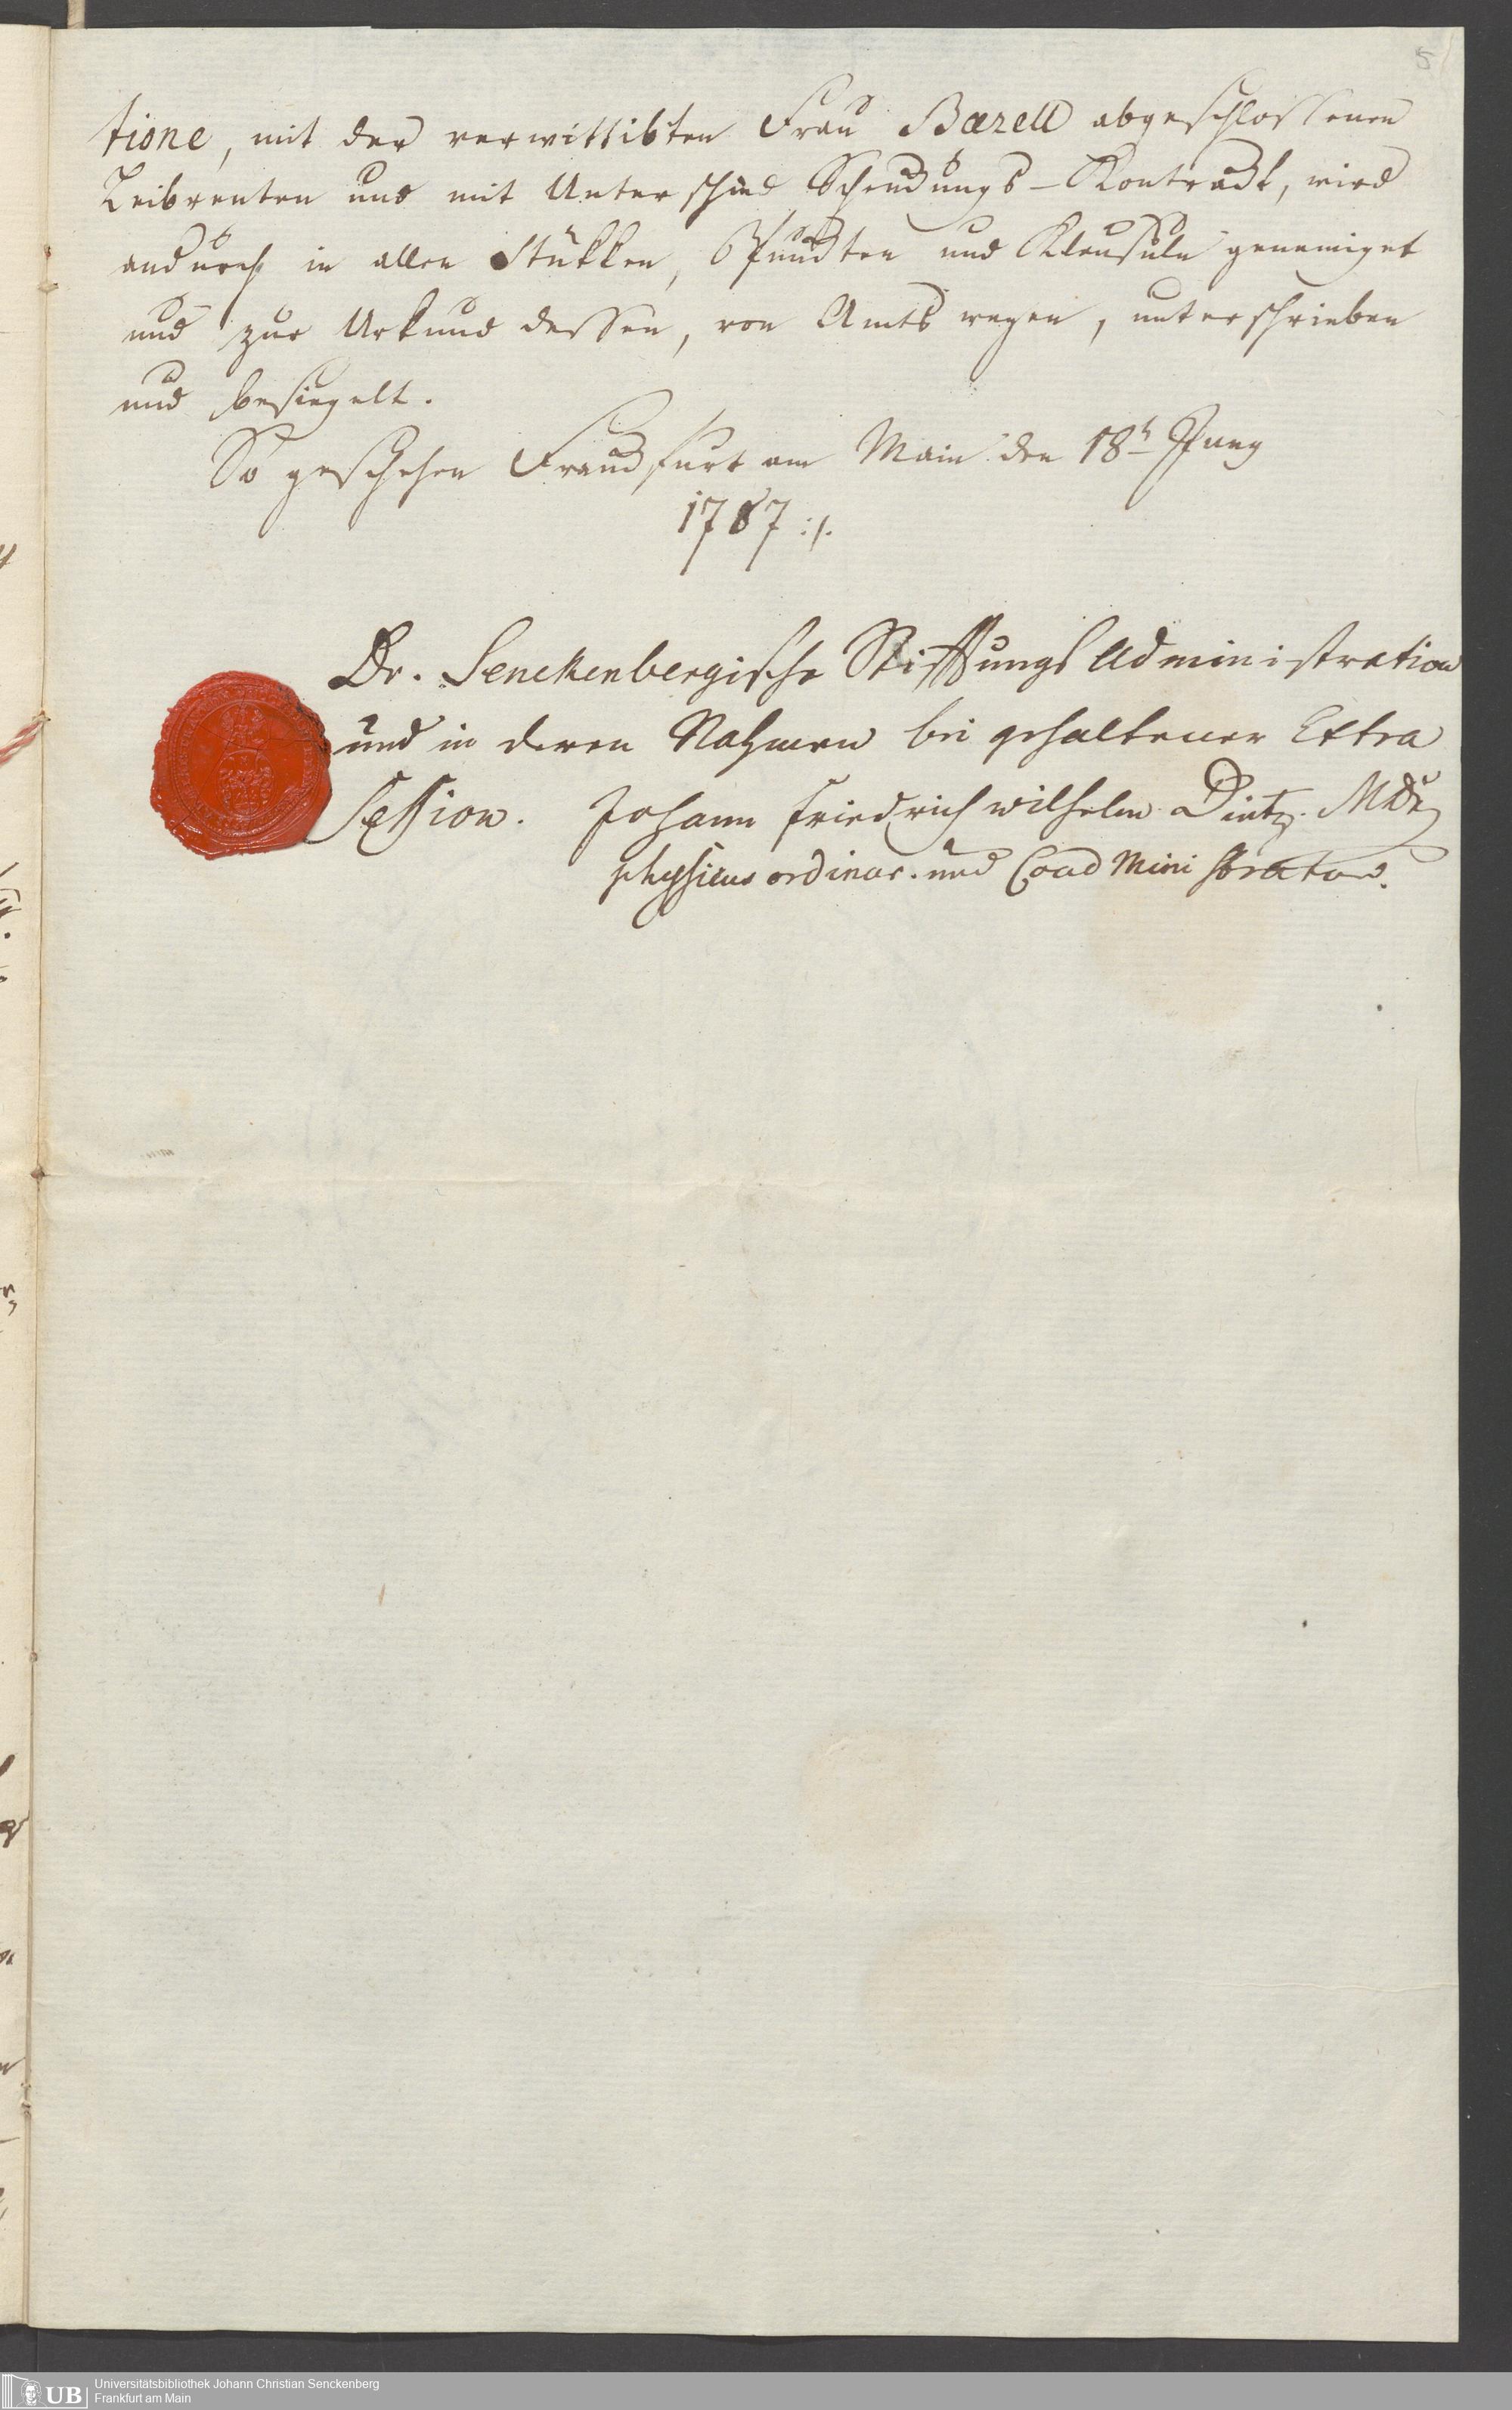 5
tione, mit der verwittibten Frau Barell abgeschlossenen
Leibrenten und mit Unterschied Schenckungs-Kontrackt, wird
andurch in allen Stükken, Puncten und Klausuln genemiget
und zur Urkund dessen, von Amts wegen, unterschrieben
und besiegelt.
So geschehen Franckfurt am Main den 18t Juny
1787 :/.
Dr. Senckenbergische Stifftungs Administration
und in deren Nahmen bei gehaltener Extra
Session. Johann Friedrich Wilhelm Dietz. MDr
physicus ordinar. und Coadministrator.
UB
Universitätsbibliothek Johann Christian Senckenberg
Frankfurt am Main